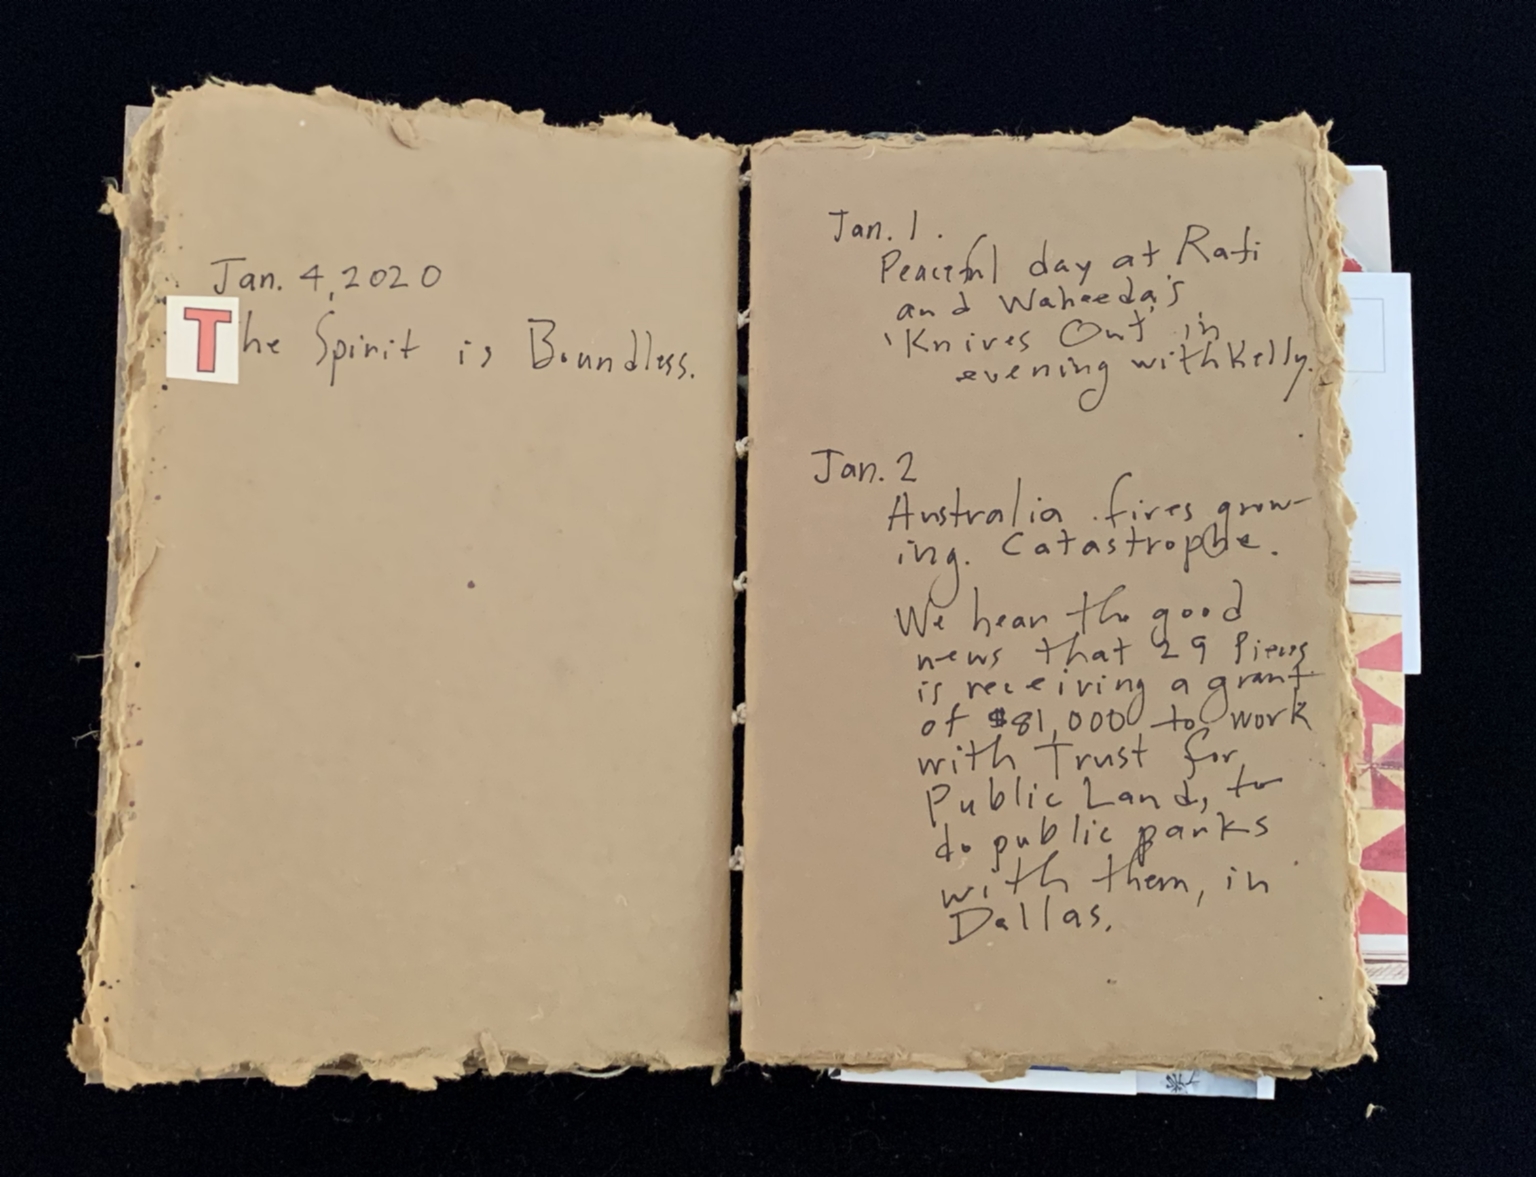 Jan. 4, 2020
The Spirit is Boundless.
Jan. 1.
Peaceful day at Rafi
and Waheeda's
'Knives Out' in
evening with Kelly.
Jan. 2
Australia fires grow-
ing. Catastrophe.
We hear the good
news that 29 Pieces
is receiving a grant
of $81,000 to work
with Trust for
Public Land, to
do public parks
with them, in
Dallas.